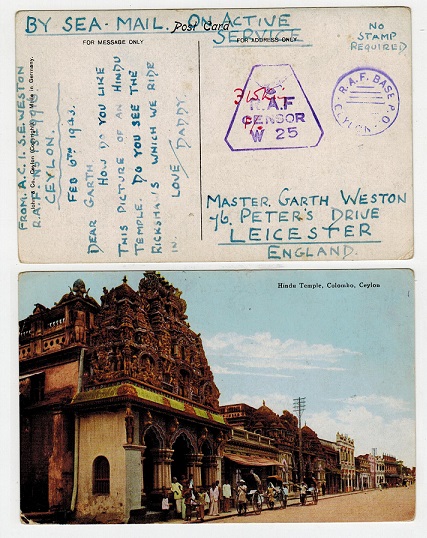 BY SEA-MAIL. ON ACTIVE
SERVICE
Post Card
FOR MESSAGE ONLY
FOR ADDRESS ONLY
NO
STAMP
REQUIRED
R.A.F
CENSOR
W 25
R.A.F. BASE P.O.
CEYLON
FROM. A.C.1. S.E. WESTON
R.A.F.
CEYLON.
FEB 6TH 1943.
DEAR GARTH
HOW DO YOU LIKE
THIS PICTURE OF AN HINDU
TEMPLE. DO YOU SEE THE
RICKSHA'S WHICH WE RIDE
IN. LOVE DADDY.
Made in Germany.
MASTER. GARTH WESTON
76. PETER'S DRIVE
LEICESTER
ENGLAND.
Hindu Temple, Colombo, Ceylon